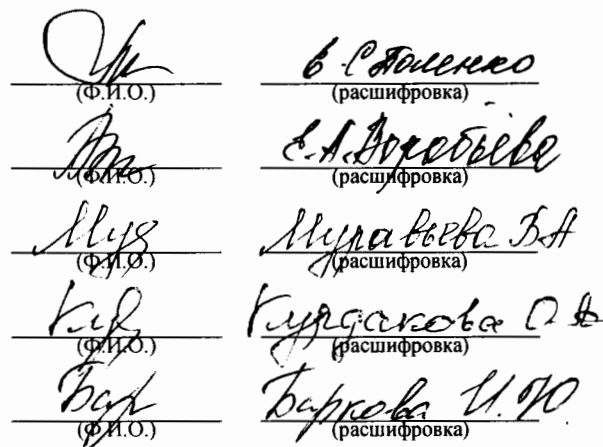 В С Толенко
(Ф.И.О.) (расшифровка)
Е.А. Воробьева
(Ф.И.О.) (расшифровка)
Мур Муравьева В А
(Ф.И.О.) (расшифровка)
Курдакова О А
(Ф.И.О.) (расшифровка)
Бар Баркова И. Ю
(Ф.И.О.) (расшифровка)